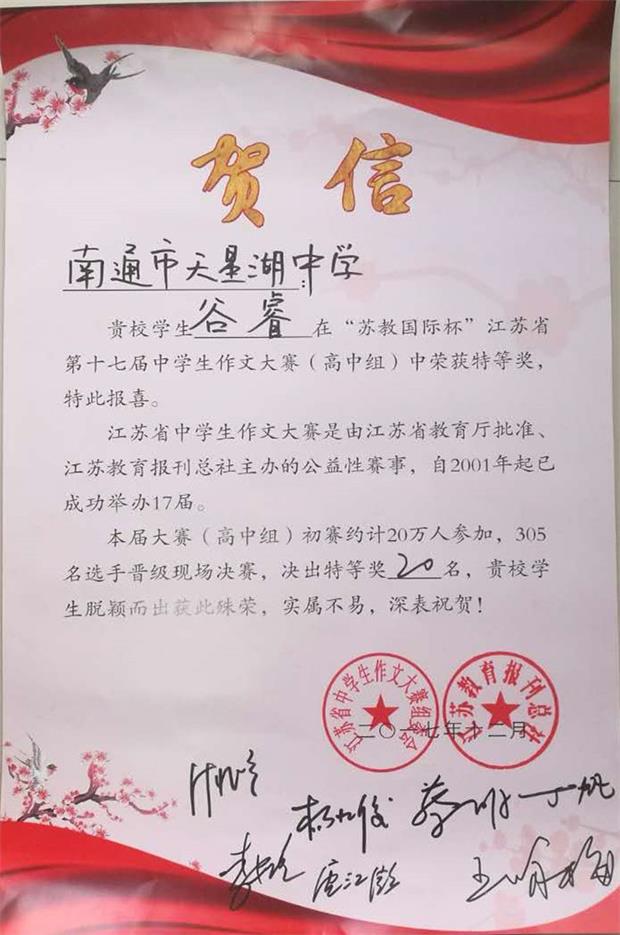 贺信
南通市天星湖中学:
贵校学生谷睿在“苏教国际杯”江苏省
第十七届中学生作文大赛（高中组）中荣获特等奖，
特此报喜。
江苏省中学生作文大赛是由江苏省教育厅批准、
江苏教育报刊总社主办的公益性赛事，自2001年起已
成功举办17届。
本届大赛（高中组）初赛约计20万人参加，305
名选手晋级现场决赛，决出特等奖20名，贵校学
生脱颖而出获此殊荣，实属不易，深表祝贺！
江苏省中学生作文大赛组委会
江苏教育报刊总社
二〇一七年十二月